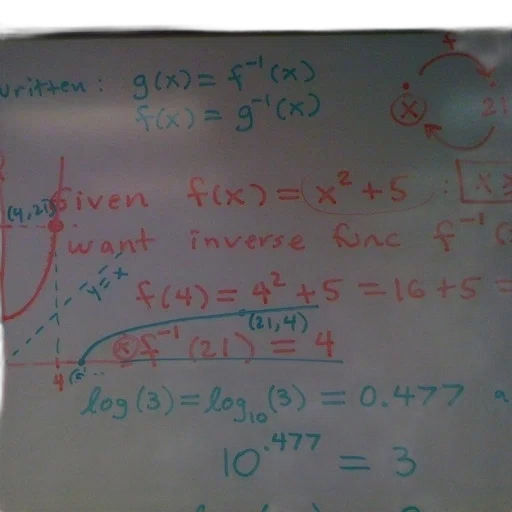 written: g(x) = f⁻¹(x)
f(x) = g⁻¹(x)
f
x
21
(4,21)
Given f(x) = x² + 5 : x ≥
want inverse func f⁻¹(
y = x
f(4) = 4² + 5 = 16 + 5 =
(21,4)
f⁻¹(21) = 4
4
log(3) = log₁₀(3) = 0.477 a
10^.477 = 3